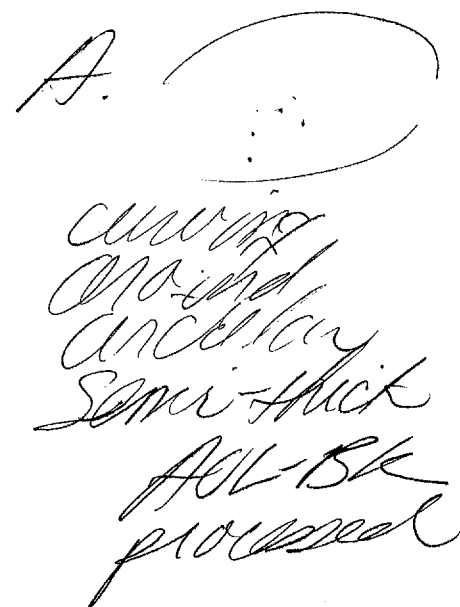 A.
curving
around
circular
semi-thick
AOL-Bk
processed